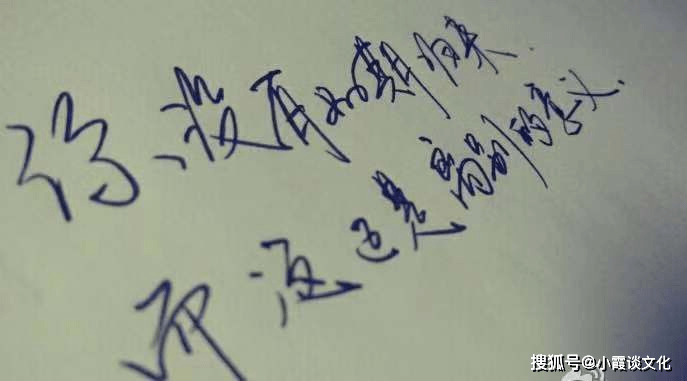 你没有如期归来.
而这正是离别的意义.
搜狐号@小霞谈文化